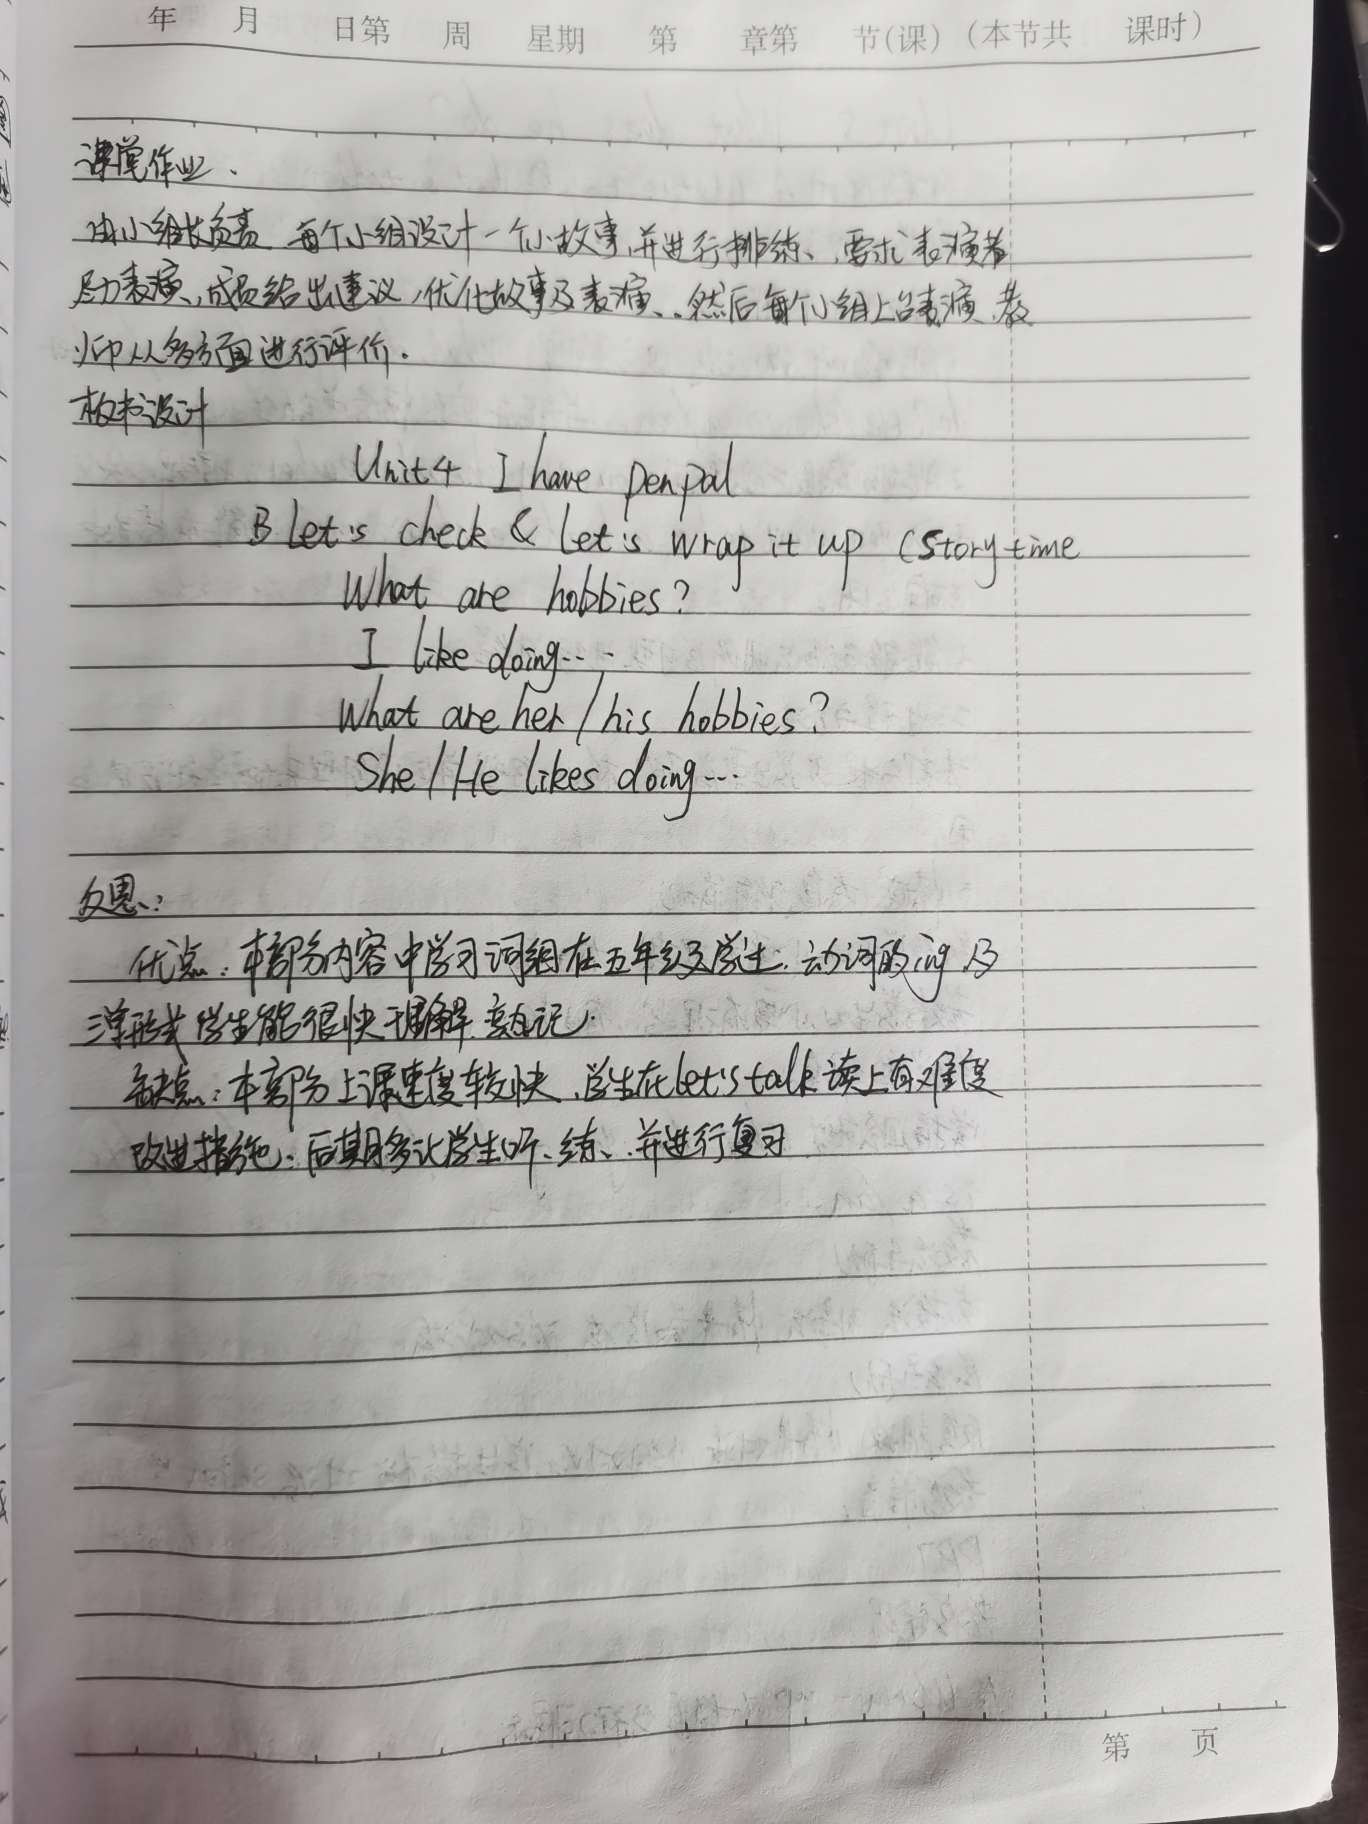 年 月 日第 周 星期 第 章第 节(课) (本节共 课时)
课堂作业.
由小组长负责 每个小组设计一个小故事,并进行排练、需求表演者
尽力表演,成员给出建议,优化故事及表演、然后每个小组上台表演,教
师从多方面进行评价.
板书设计
Unit4 I have penpal
B Let's check & Let's wrap it up (Story time
What are hobbies?
I like doing……
What are her/his hobbies?
She/He likes doing…
反思:
优点:本部分内容中学习词组在五年级学过.动词的ing及
三单形式学生能很快理解熟记.
缺点:本部分上课速度较快,学生在Let's talk 读上有难度
改进措施:后期多让学生听、练、并进行复习
第 页